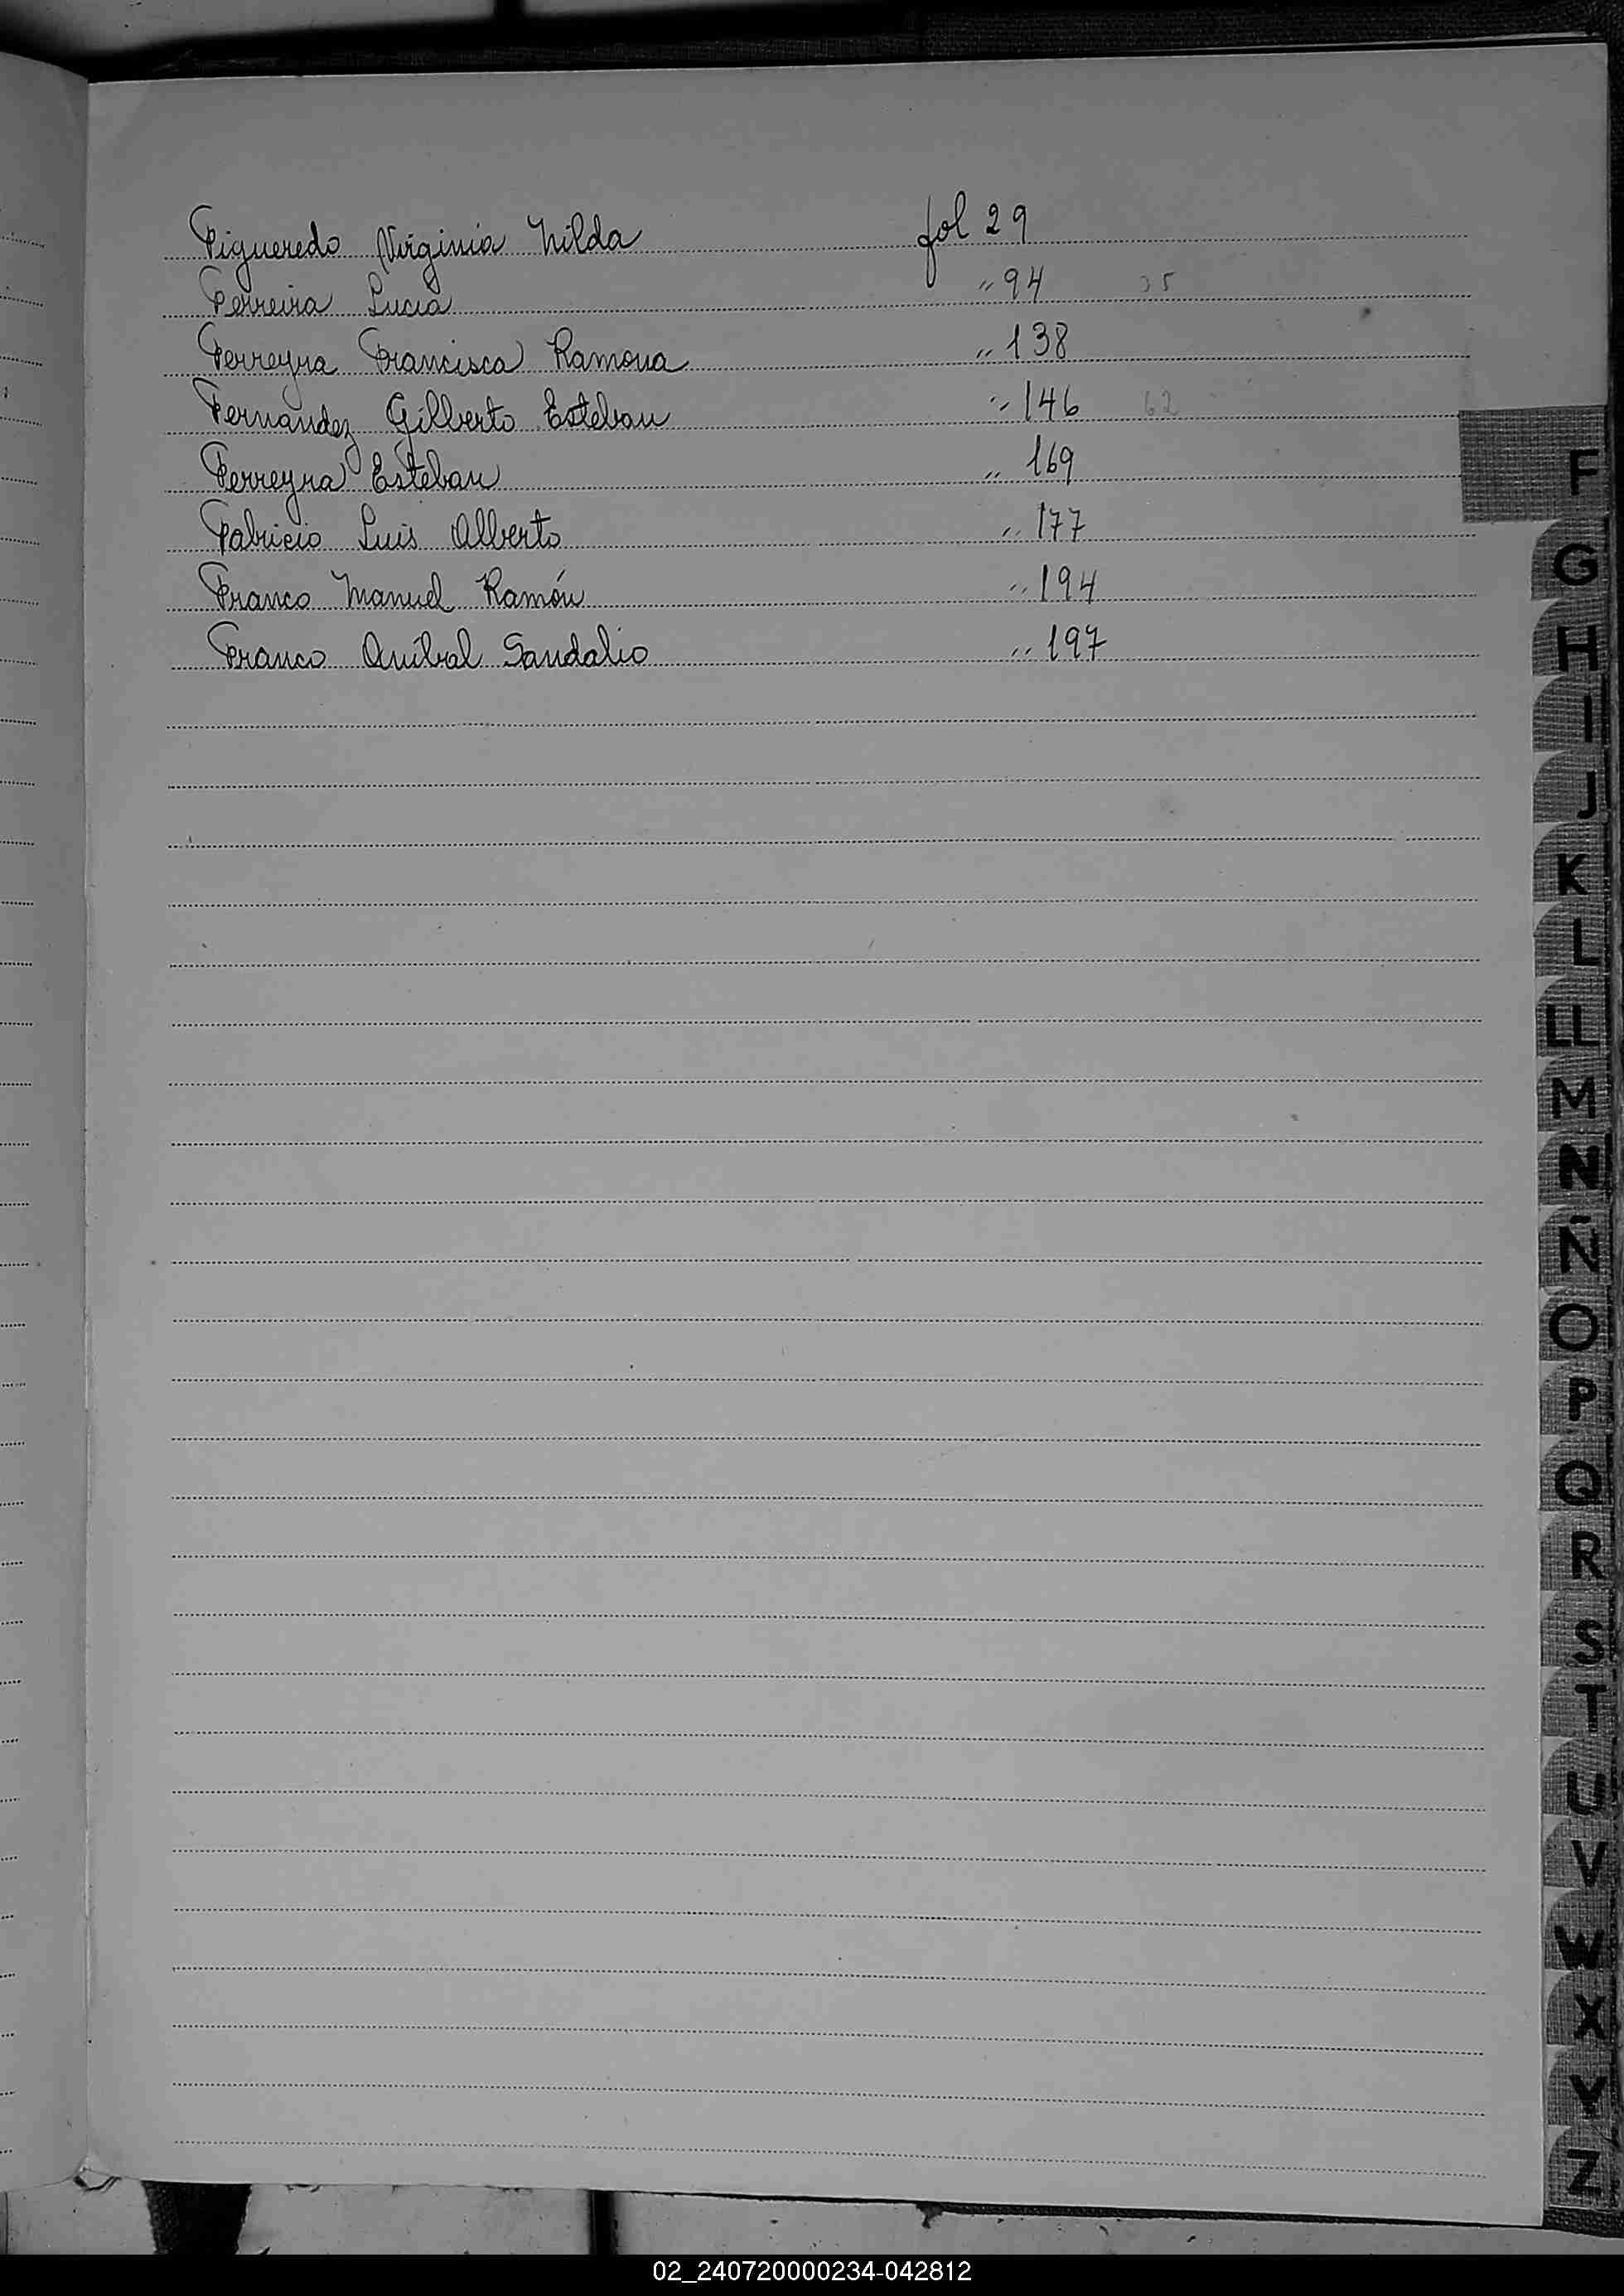 Figueredo Virginia Nilda fol 29
Ferreira Lucia " 94 35
Ferreyra Francisca Ramona " 138
Fernandez Gilberto Esteban " 146 62
Ferreyra Esteban " 169
Fabricio Luis Alberto " 177
Franco Manuel Ramón " 194
Franco Aníbal Sandalio " 197
F
G
H
I
J
K
L
LL
M
N
Ñ
O
P
Q
R
S
T
U
V
W
X
Y
Z
02_240720000234-042812